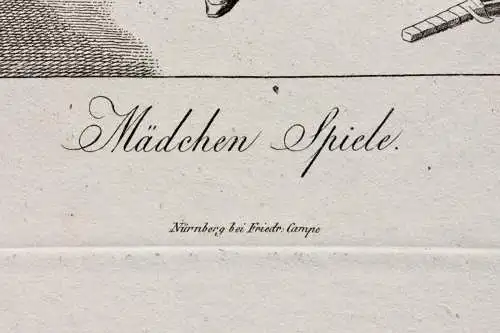 Mädchen Spiele.
Nürnberg bei Friedr. Campe